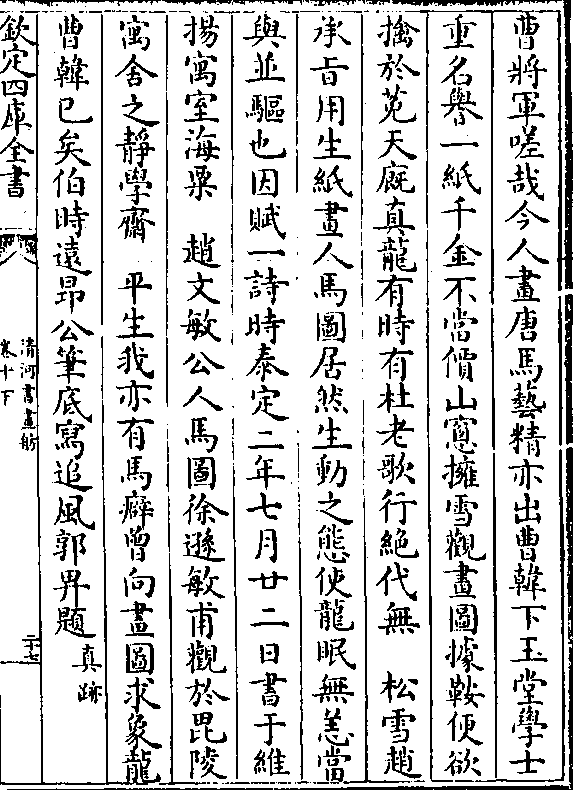 曹將軍嗟哉今人畫唐馬藝精亦出曹韓下玉堂學士
重名譽一紙千金不當價山窻擁雪觀畫圖據鞍便欲
擒於菟天廐真龍有時有杜老歌行絶代無　松雪趙
承㫖用生紙畫人馬圖居然生動之態使龍眠無恙當
與並驅也因賦一詩時泰定二年七月廿二日書于維
揚寓室海粟　趙文敏公人馬圖徐遜敏甫觀於毘陵
寓舍之靜學齋　平生我亦有馬癖曾向畫圖求象龍
曹韓已矣伯時遠昂公筆底寫追風郭畀題 真跡
欽定四庫全書
清河書畫舫
卷十下
二十七